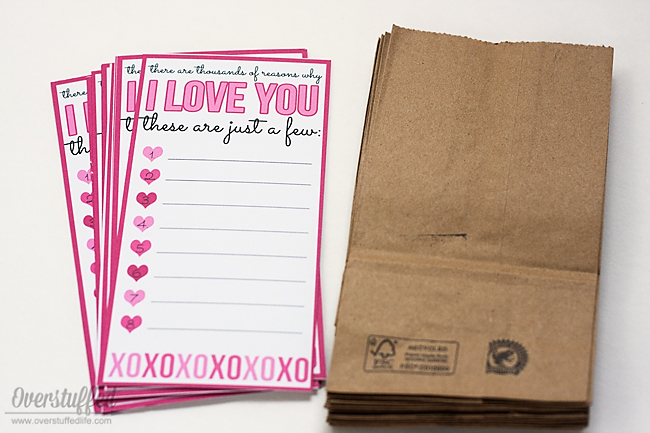 there are thousands of reasons why
I LOVE YOU
these are just a few:
1
2
3
4
5
6
7
8
XOXOXOXOXOXO
there
I
th
1
2
3
FSC
RECYCLED
Overstuffed
www.overstuffedlife.com